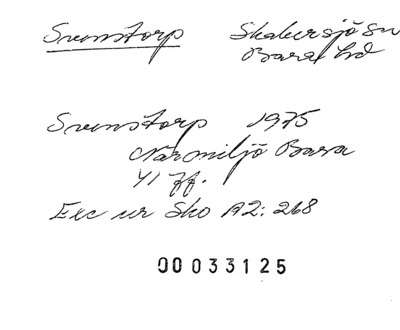 Svenstorp Skabersjö sn
Bara hd
Svenstorp 1975
Närmiljö Bara
41 ff.
Exc ur Sko A2: 268
00033125